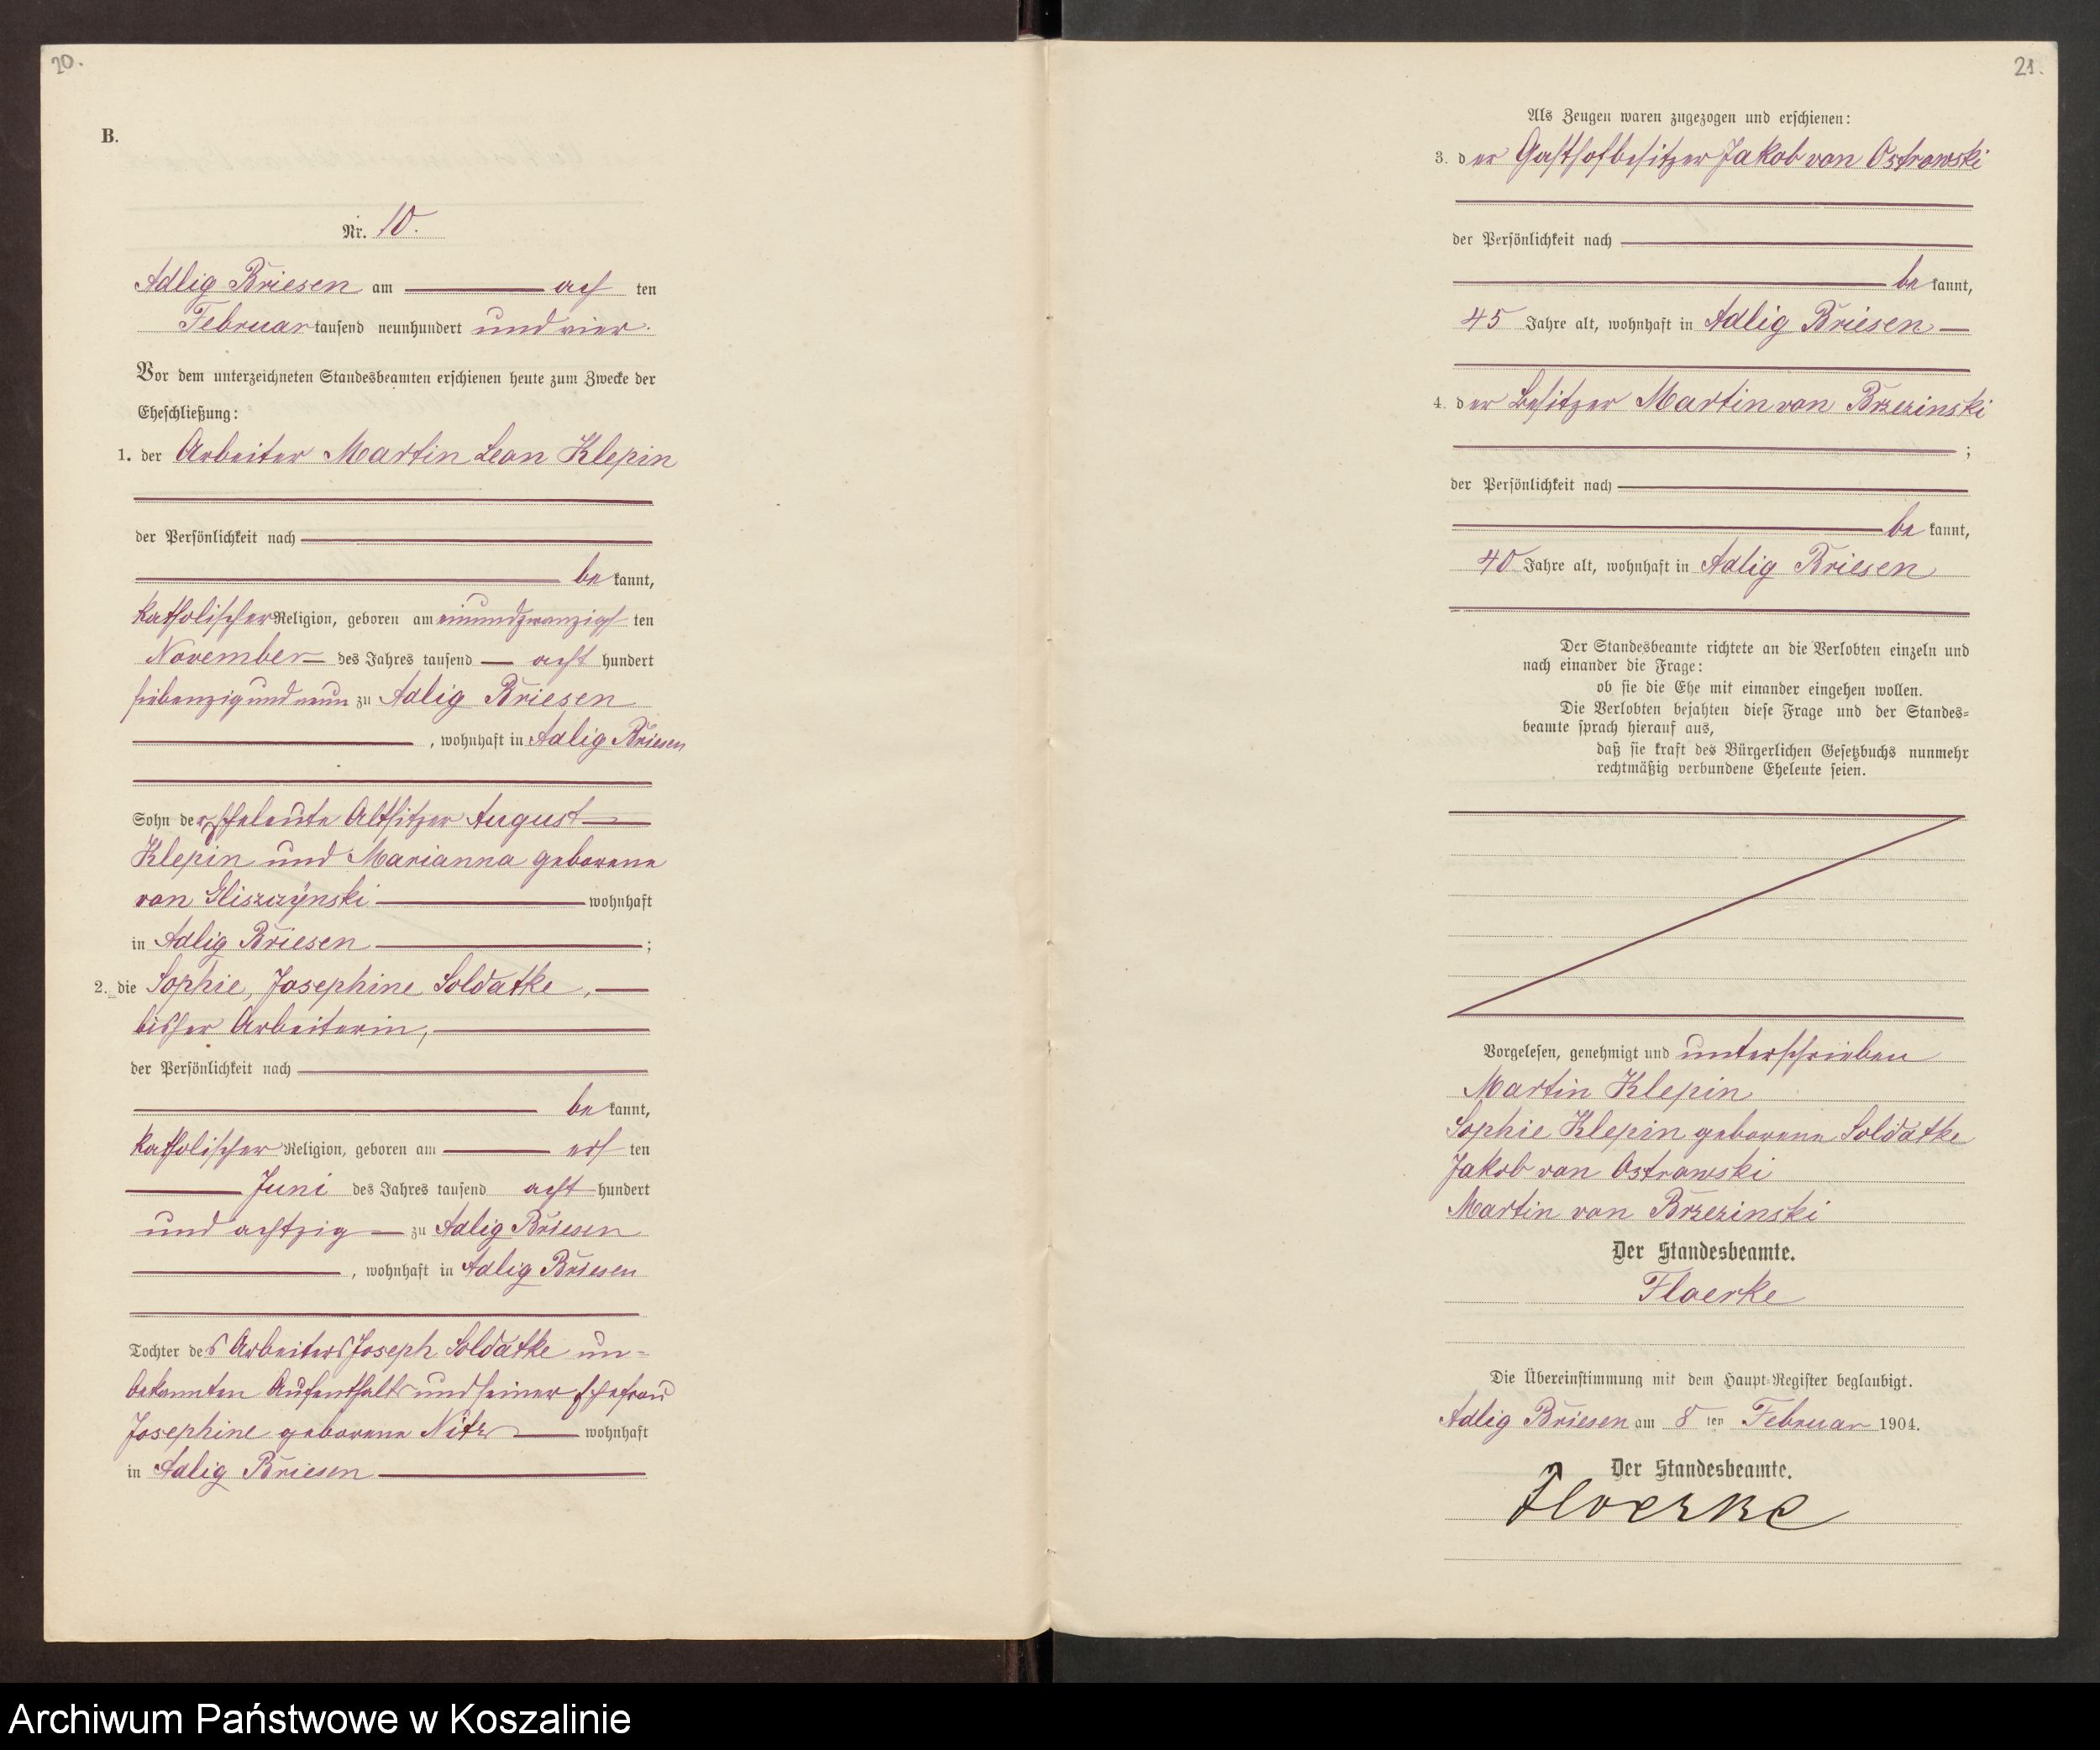 20.
B.
Nr. 10.
Adlig Briesen am ach ten
Februar tausend neunhundert und vier.
Vor dem unterzeichneten Standesbeamten erschienen heute zum Zwecke der
Eheschließung:
1. der Arbeiter Martin Leon Klepin
der Persönlichkeit nach
be kannt,
katholischer Religion, geboren am einundzwanzigs ten
November des Jahres tausend acht hundert
siebenzig und neun zu Adlig Briesen
, wohnhaft in Adlig Briesen
Sohn der Eheleute Altsitzer August
Klepin und Marianna geborene
von Gliszczynski wohnhaft
in Adlig Briesen ;
2. die Sophie, Josephine Soldatke,
bisher Arbeiterin,
der Persönlichkeit nach
be kannt,
katholischer Religion, geboren am ers ten
Juni des Jahres tausend acht hundert
und achtzig zu Adlig Briesen
, wohnhaft in Adlig Briesen
Tochter des Arbeiters Joseph Soldatke un-
bekannten Aufenthalts und seiner Ehefrau
Josephine geborene wohnhaft
in Adlig Briesen
21.
Als Zeugen waren zugezogen und erschienen:
3. der Gasthofbesitzer Jakob von Ostrowski
der Persönlichkeit nach
be kannt,
45 Jahre alt, wohnhaft in Adlig Briesen
4. der Besitzer Martin von Brzezinski
;
der Persönlichkeit nach
be kannt,
40 Jahre alt, wohnhaft in Adlig Briesen
Der Standesbeamte richtete an die Verlobten einzeln und
nach einander die Frage:
ob sie die Ehe mit einander eingehen wollen.
Die Verlobten bejahten diese Frage und der Standes-
beamte sprach hierauf aus,
daß sie kraft des Bürgerlichen Gesetzbuchs nunmehr
rechtmäßig verbundene Eheleute seien.
Vorgelesen, genehmigt und unterschrieben
Martin Klepin
Sophie Klepin geborene Soldatke
Jakob von Ostrowski
Martin von Brzezinski
Der Standesbeamte.
Floerke
Die Übereinstimmung mit dem Haupt-Register beglaubigt.
Adlig Briesen am 8 ten Februar 1904.
Der Standesbeamte.
Floerke
Archiwum Państwowe w Koszalinie